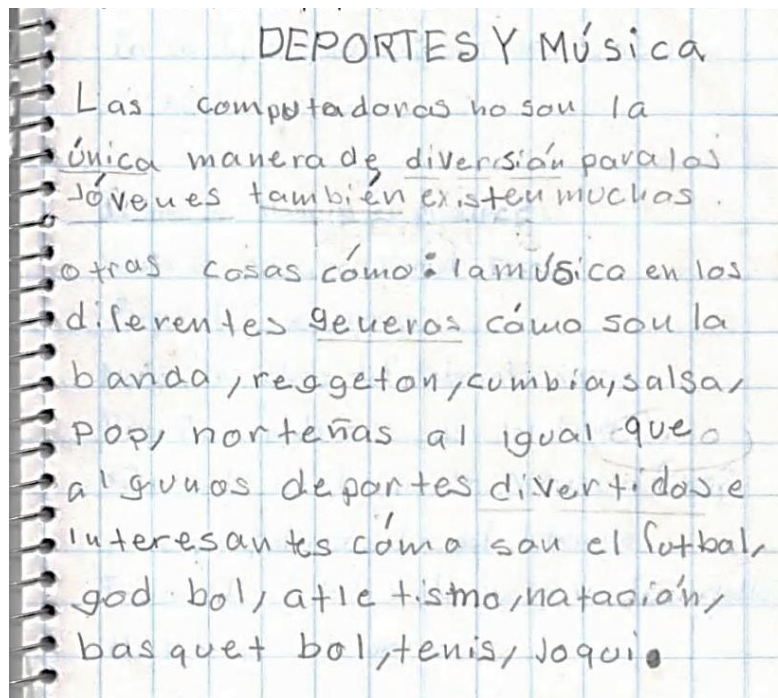 DEPORTES Y MúSica
Las computadoras no son la
única manera de diversión para los
Jóvenes también existen muchas.
otras cosas cómo: la música en los
diferentes generos cómo son la
banda, reggeton, cumbia, salsa,
Pop, norteñas al igual que
algunos deportes divertidos e
interesantes cómo son el futbal,
god bol, atletismo, natación,
basquet bol, tenis, Joqui.